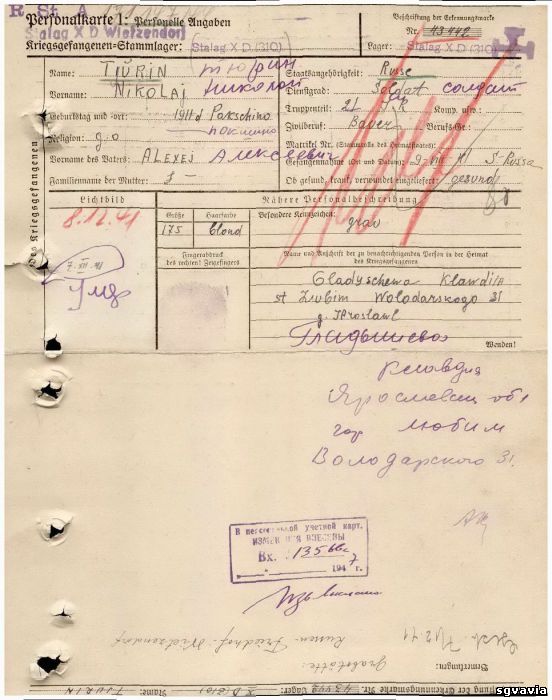 Stalag X D Wietzendorf
Personalkarte 1: Personelle Angaben
Kriegsgefangenen-Stammlager: Stalag X D (310)
Beschriftung der Erkennungsmarke
Nr. 43442
Lager: Stalag X D (310)
Des Kriegsgefangenen
Name: TJURIN Тюрин
Vorname: NIKOLAJ Николай
Geburtstag und -ort: 1911 d Pokschino
Religion: g.o
Vorname des Vaters: ALEXEJ Алексеевич
Familienname der Mutter:
Staatsangehörigkeit: Russe
Dienstgrad: Soldat солдат
Truppenteil: Komp. usw.:
Zivilberuf: Bauer Berufs-Gr.:
Matrikel Nr. (Stammrolle des Heimatstaates):
Gefangennahme (Ort und Datum):
Ob gesund, krank, verwundet eingeliefert: gesund
Lichtbild
8.12.41
7. XII. 41
Nähere Personalbeschreibung
Größe
Haarfarbe
Besondere Kennzeichen:
175
blond
grav
Fingerabdruck
des rechten! Zeigefingers
Name und Anschrift der zu benachrichtigenden Person in der Heimat
des Kriegsgefangenen
Gladyschewa Klawdija
st Ljubim Wolodarskogo 31
g. Jaroslawl
Гладышева
Wenden!
Клавдия
Ярославск обл
гор Любим
Володарского 31.
В персональной учетной карт.
ИЗМЕНЕНИЯ ВНЕСЕНЫ
Вх.
1947 г.
Bemerkungen:
Grabstätte:
Russen-Friedhof-Wietzendorf
Beschriftung der Erkennungsmarke
Nr. 43442 Lager: X D (310) Name: TJURIN
sgvavia